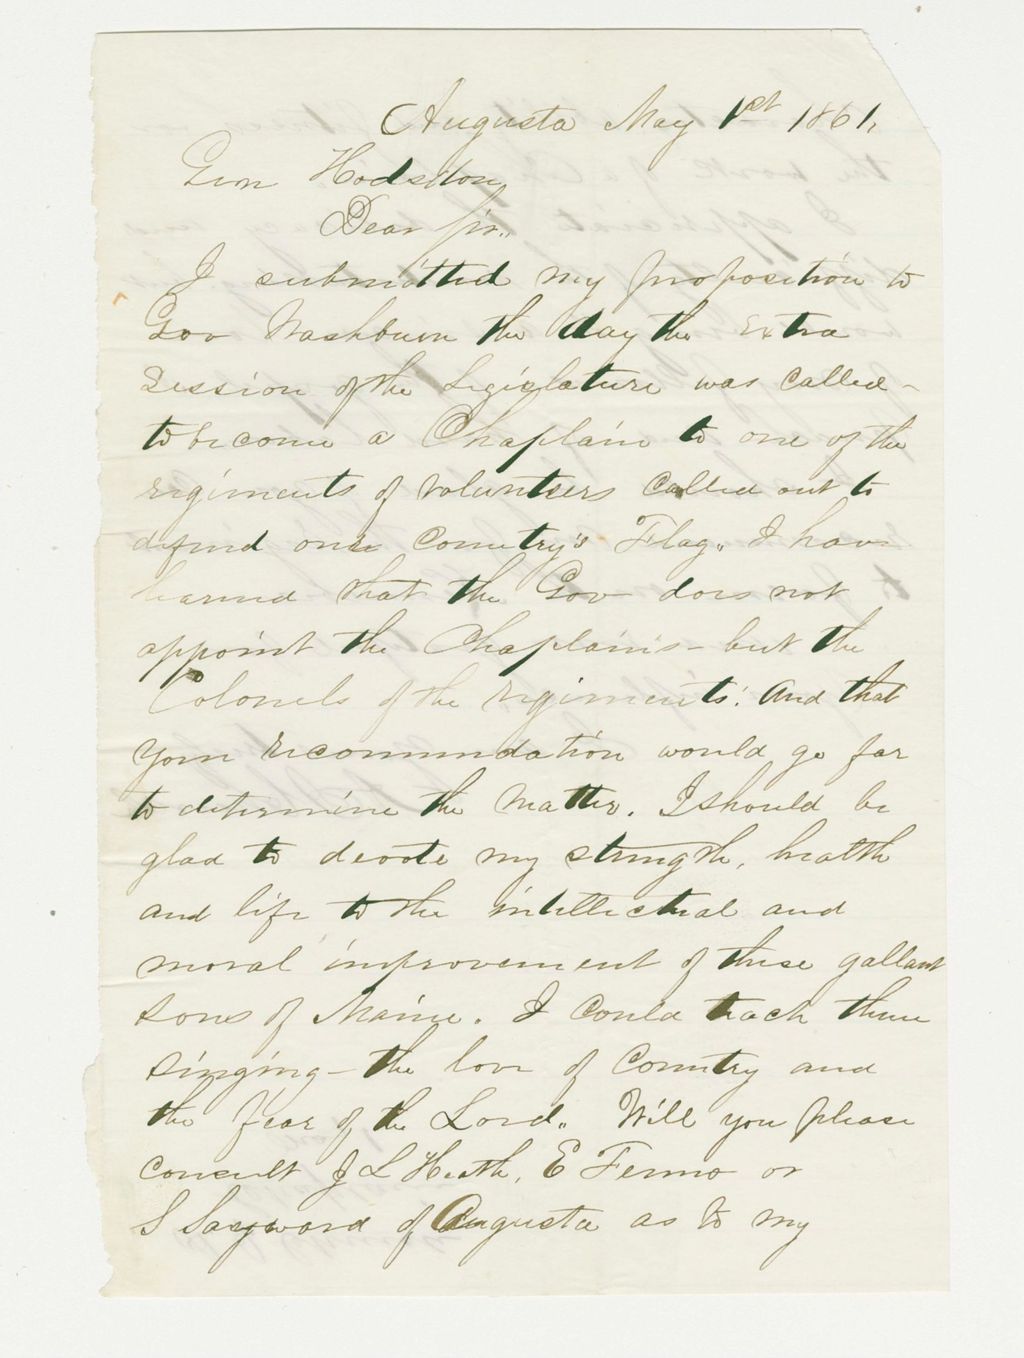 Augusta May 1st 1861,
Gen Hodsdon,
Dear Sir,,
I submitted my proposition to
Gov Washburn the day the Extra
Session of the Legislature was called –
to become a Chaplain to one of the
regiments of volunteers called out to
defend our Country's Flag,, I have
learned that the Gov– does not
appoint the Chaplains – but the
Colonels of the regiments: And that
your recommendation would go far
to determine the matter. I should be
glad to devote my strength, health
and life to the intellectual and
moral improvement of these gallant
sons of Maine. I could teach them
singing – the love of Country and
the fear of the Lord,, Will you please
consult J L Heath, E Fenno or
S Sayward of Augusta as to my